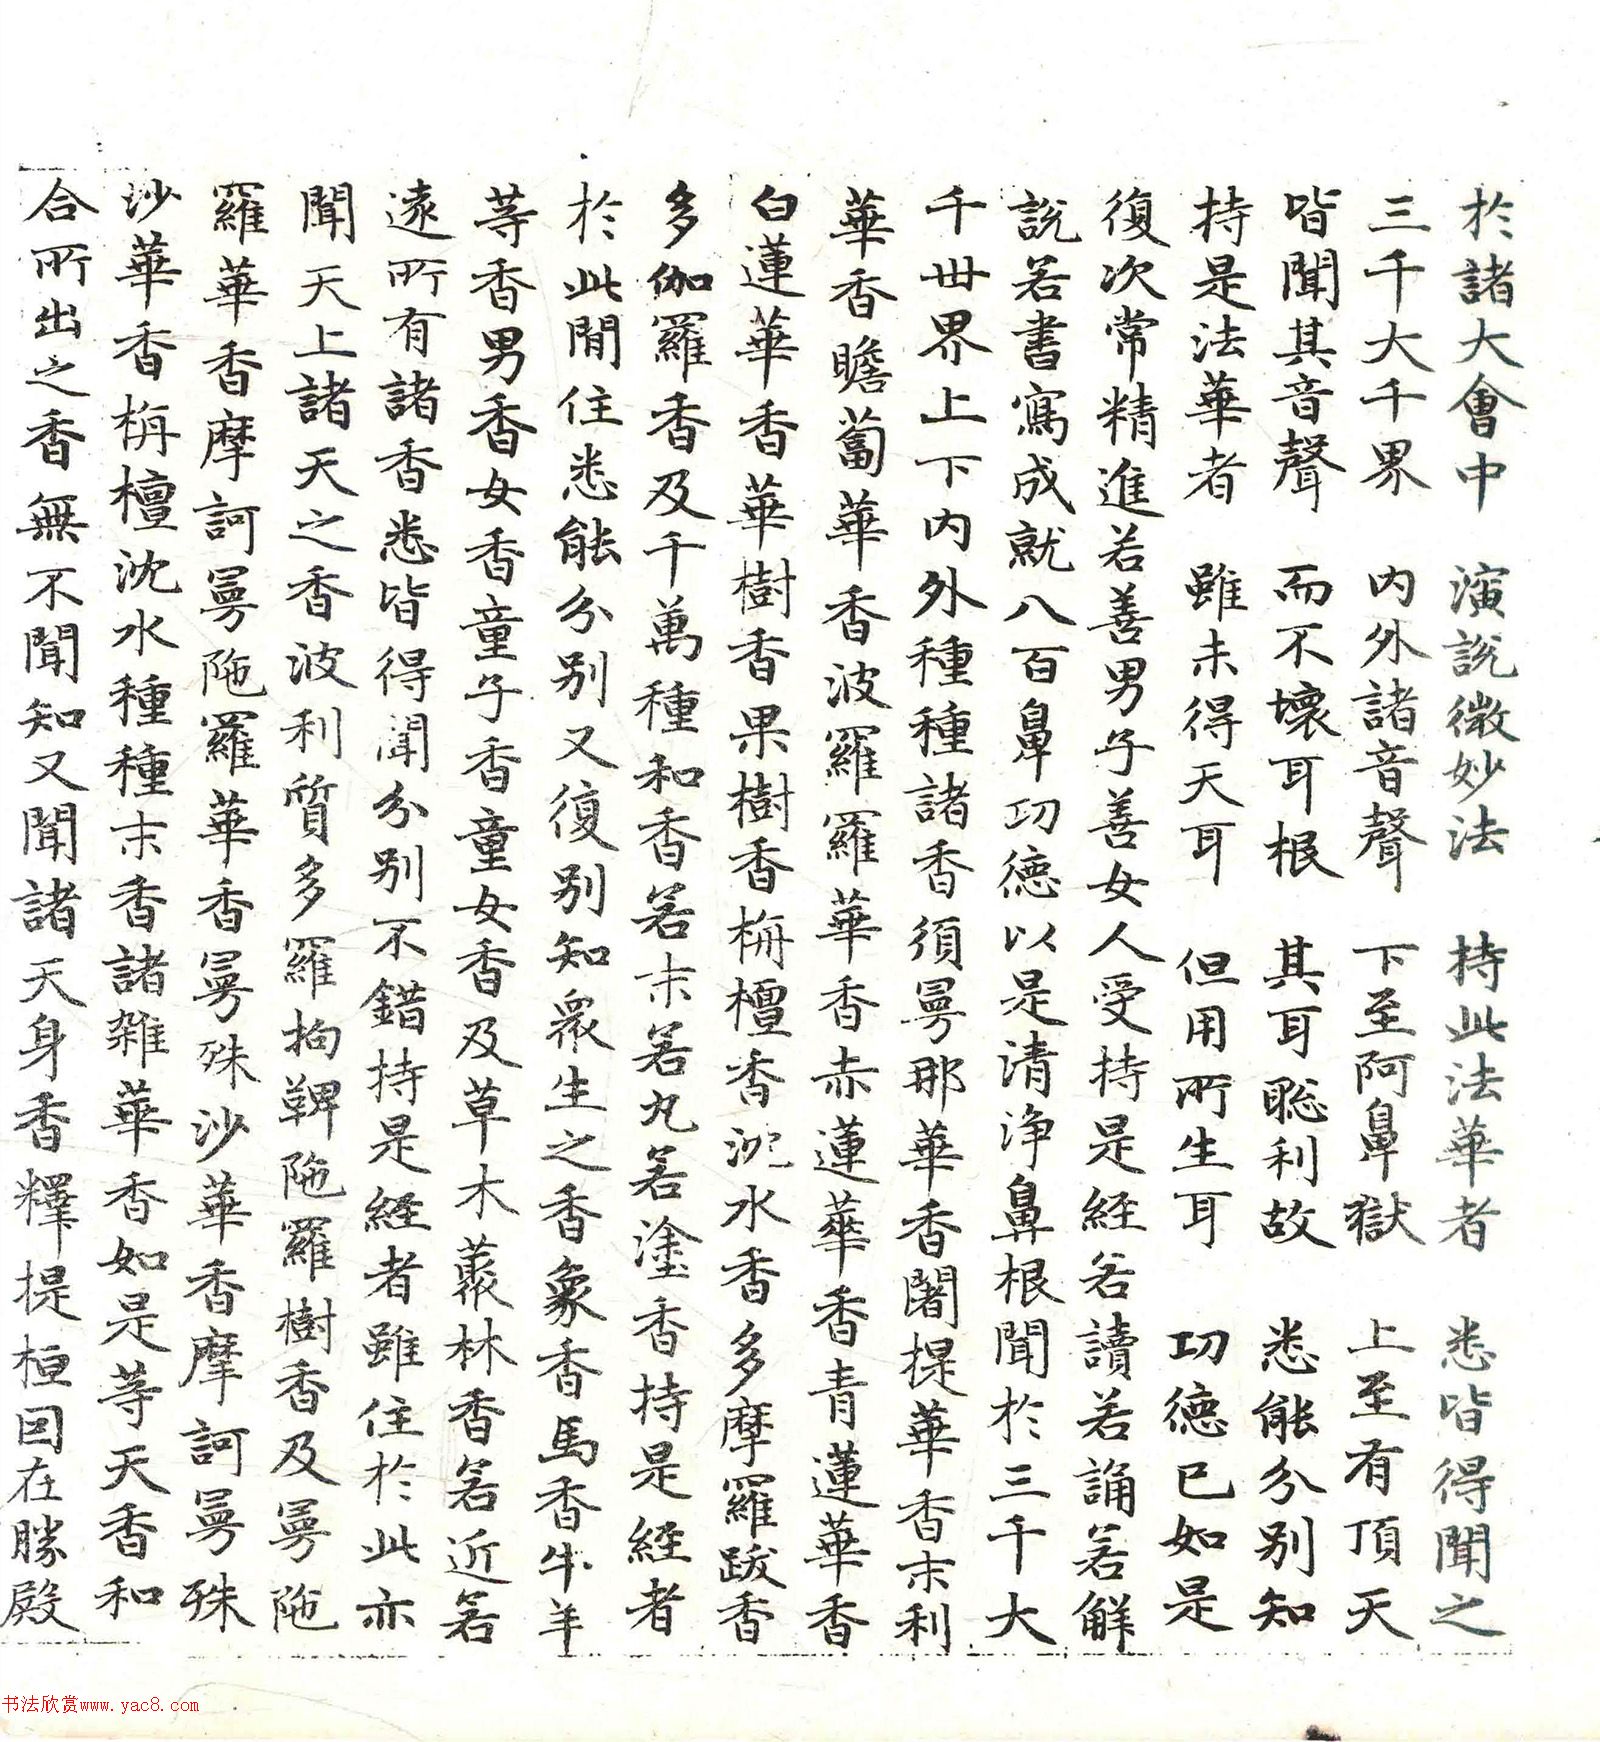 於諸大會中　演說微妙法　持此法華者　悉皆得聞之
三千大千界　内外諸音聲　下至阿鼻獄　上至有頂天
皆聞其音聲　而不壞耳根　其耳聡利故　悉能分別知
持是法華者　雖未得天耳　但用所生耳　功德已如是
復次常精進若善男子善女人受持是経若讀若誦若解
說若書寫成就八百鼻功德以是清淨鼻根聞於三千大
千世界上下内外種種諸香須曼那華香闍提華香末利
華香瞻蔔華香波羅羅華香赤蓮華香青蓮華香
白蓮華香華樹香果樹香栴檀香沈水香多摩羅跋香
多伽羅香及千萬種和香若末若丸若塗香持是経者
於此間住悉能分別又復別知衆生之香象香馬香牛羊
等香男香女香童子香童女香及草木叢林香若近若
遠所有諸香悉皆得聞分別不錯持是経者雖住於此亦
聞天上諸天之香波利質多羅拘鞞陁羅樹香及曼陁
羅華香摩訶曼陁羅華香曼殊沙華香摩訶曼殊
沙華香栴檀沈水種種末香諸雜華香如是等天香和
合所出之香無不聞知又聞諸天身香釋提桓因在勝殿
书法欣赏www.yac8.com